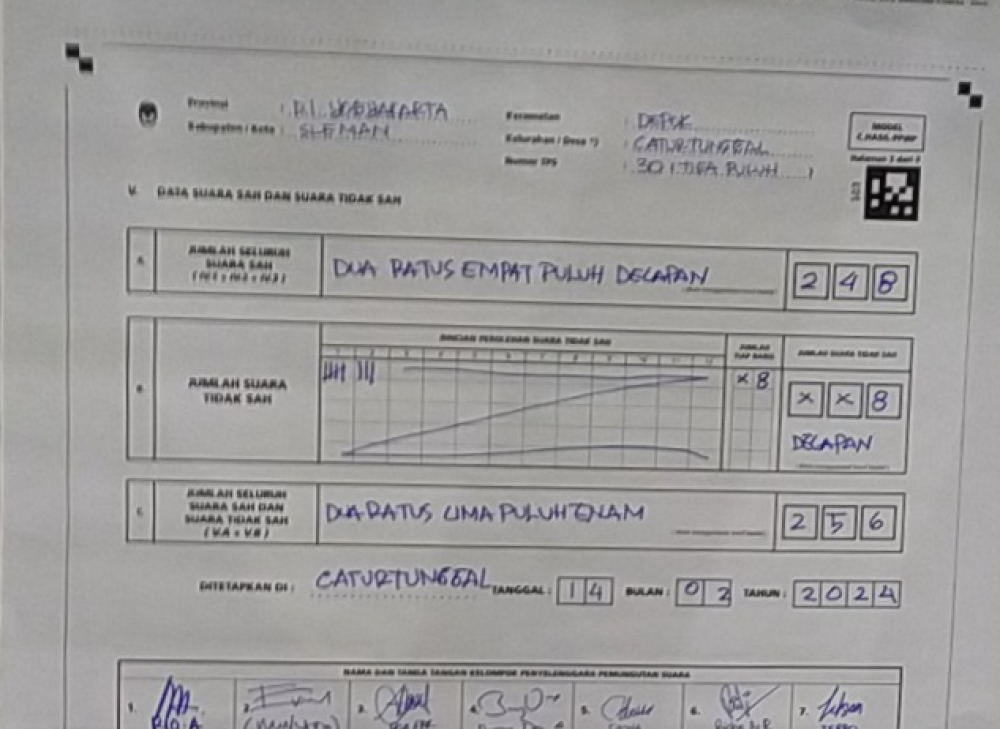 Provinsi : D.I. YOGYAKARTA
Kabupaten / Kota : SLEMAN
Kecamatan : DEPOK
Kelurahan / Desa *) : CATURTUNGGAL
Nomor TPS : 30 ( TIGA PULUH )
MODEL
C.HASIL-PPWP
Halaman 3 dari 3
V. DATA SUARA SAH DAN SUARA TIDAK SAH
A. JUMLAH SELURUH
SUARA SAH
DUA RATUS EMPAT PULUH DELAPAN
2 4 8
RINCIAN PEROLEHAN SUARA TIDAK SAH
JUMLAH
TIAP BARIS
JUMLAH SUARA TIDAK SAH
1 2 3 4 5 6 7 8 9 10 11 12
B. JUMLAH SUARA
TIDAK SAH
X 8
X X 8
DELAPAN
C. JUMLAH SELURUH
SUARA SAH DAN
SUARA TIDAK SAH
( V.A + V.B )
DUA RATUS LIMA PULUH ENAM
2 5 6
DITETAPKAN DI : CATURTUNGGAL TANGGAL : 14 BULAN : 02 TAHUN : 2024
NAMA DAN TANDA TANGAN KELOMPOK PENYELENGGARA PEMUNGUTAN SUARA
1. 2. 3. 4. 5. 6. 7.